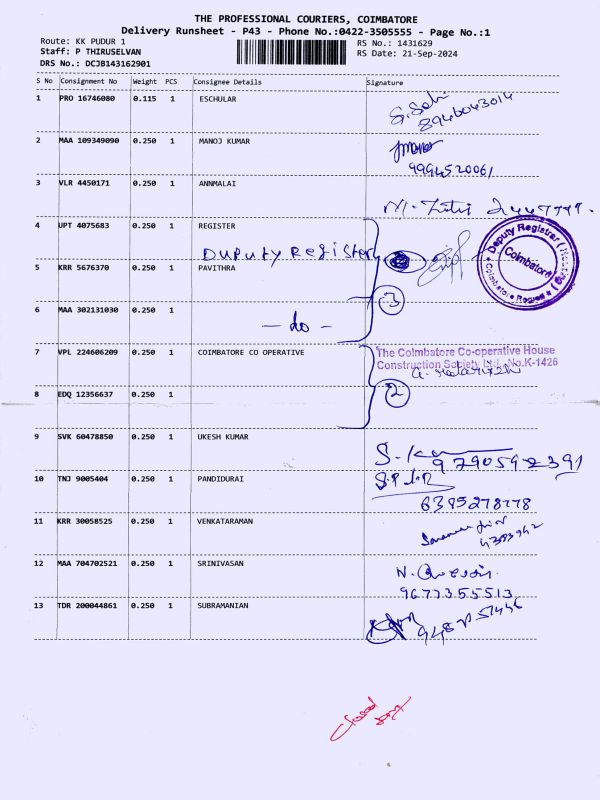 THE PROFESSIONAL COURIERS, COIMBATORE
Delivery Runsheet - P43 - Phone No.:0422-3505555 - Page No.:1
Route: KK PUDUR 1
RS No.: 1431629
Staff: P THIRUSELVAN
RS Date: 21-Sep-2024
DRS No.: DCJB143162901
S No Consignment No Weight PCS Consignee Details Signature
1 PRO 16746080 0.115 1 ESCHULAR
8946043014
2 MAA 109349090 0.250 1 MANOJ KUMAR
9994520061
3 VLR 4450171 0.250 1 ANNMALAI
4 UPT 4075683 0.250 1 REGISTER
DUPUTY REGISTER
Deputy Registrar
Coimbatore
5 KRR 5676370 0.250 1 PAVITHRA
3
6 MAA 302131030 0.250 1
- do -
7 VPL 224606209 0.250 1 COIMBATORE CO OPERATIVE
The Coimbatore Co-operative House
Construction Society Ltd., No.K-1426
8 EDQ 12356637 0.250 1
2
9 SVK 60478850 0.250 1 UKESH KUMAR
9790592391
10 TNJ 9005404 0.250 1 PANDIDURAI
6385278778
11 KRR 30058525 0.250 1 VENKATARAMAN
12 MAA 704702521 0.250 1 SRINIVASAN
9677355513
13 TDR 200044861 0.250 1 SUBRAMANIAN